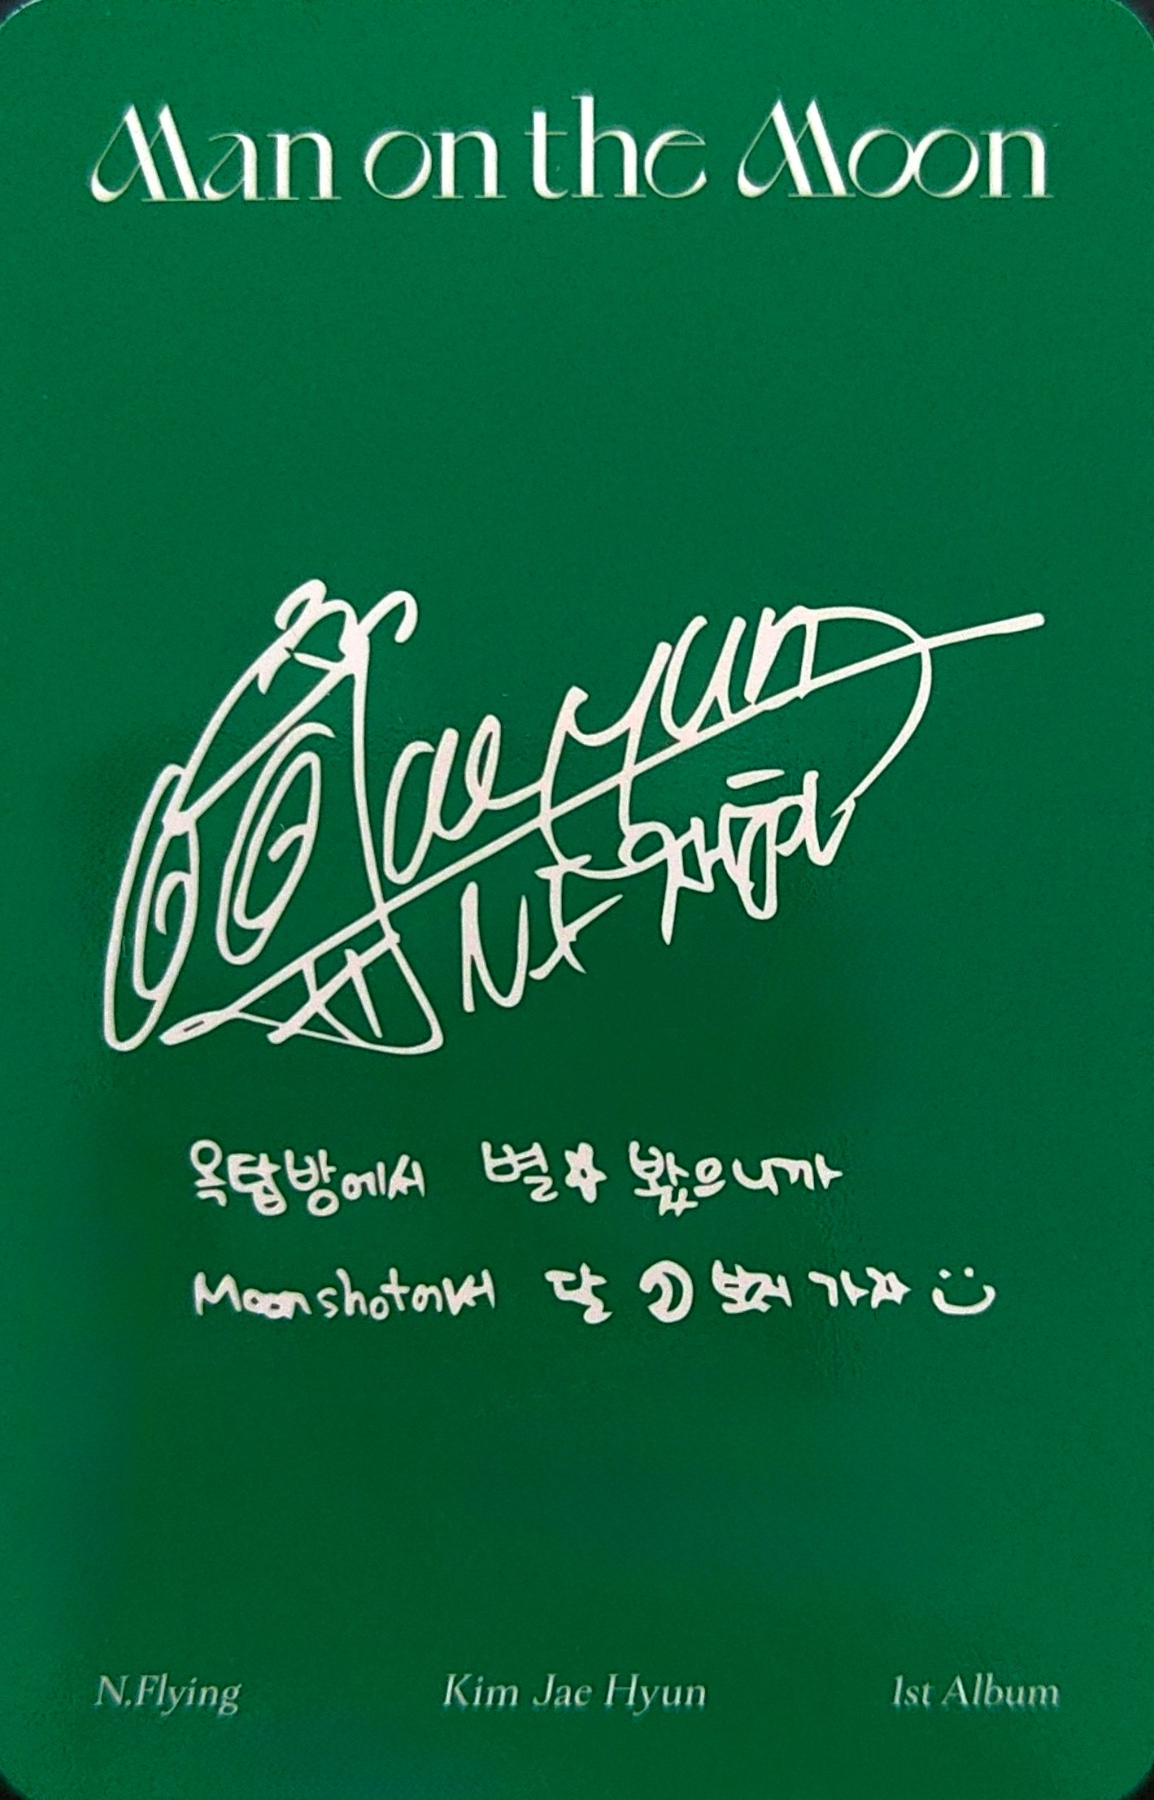 Man on the Moon
Jaehyun
NF 재현
옥탑방에서 별☆ 봤으니까
Moonshot에서 달 보러 가자
N.Flying Kim Jae Hyun 1st Album